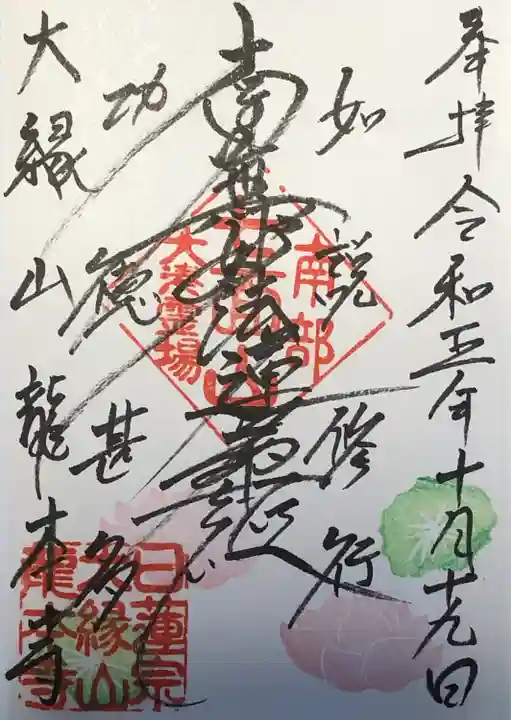 奉拝 令和五年十月十九日
如説修行
南無妙法蓮華経
功徳甚多
大縁山龍本寺
南部
大漆霊場
日蓮宗
大縁山
龍本寺